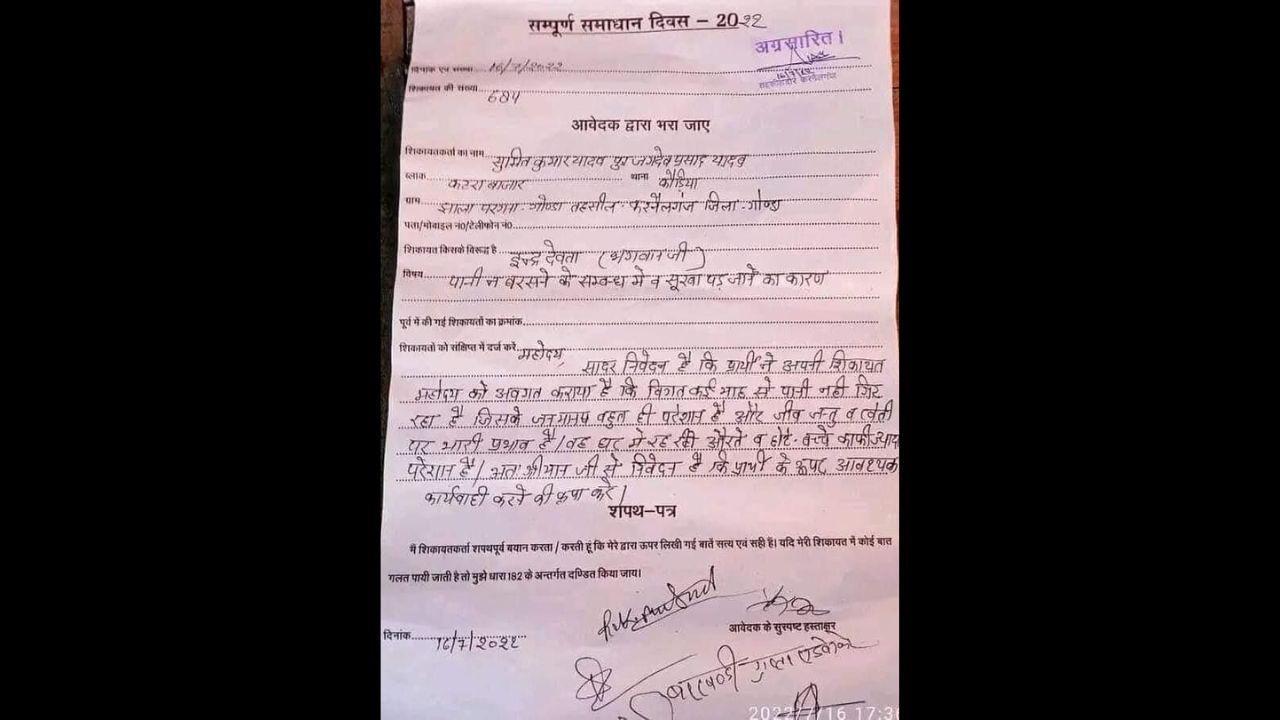 सम्पूर्ण समाधान दिवस – 2022
अग्रसारित।
दिनांक एवं संख्या 16/7/2022
शिकायत की संख्या 684
आवेदक द्वारा भरा जाए
शिकायतकर्ता का नाम सुमित कुमार यादव पुत्र जगदेव प्रसाद यादव
ब्लाक कटरा बाजार थाना कौड़िया
ग्राम झाला परगना गोण्डा तहसील करनैलगंज जिला गोण्डा
पता/मोबाइल नं0/टेलीफोन नं0
शिकायत किसके विरूद्ध है इन्द्र देवता (भगवान जी)
विषय पानी न बरसने के सम्बन्ध में व सूखा पड़ जाने का कारण
पूर्व में की गई शिकायतों का क्रमांक
शिकायतों को संक्षिप्त में दर्ज करें महोदय,
सादर निवेदन है कि प्रार्थी ने अपनी शिकायत
महोदय को अवगत कराया है कि विगत कई माह से पानी नही गिर
रहा है जिसके जनमानस बहुत ही परेशान है और जीव जन्तु व खेती
पर भारी प्रभाव है। घर में रह रही औरते व छोटे बच्चे काफी ज्यादा
परेशान है। अतः श्रीमान जी से निवेदन है कि प्रार्थी के ऊपर आवश्यक
कार्यवाही करने की कृपा करें।
शपथ–पत्र
मैं शिकायतकर्ता शपथपूर्व बयान करता / करती हूं कि मेरे द्वारा ऊपर लिखी गई बातें सत्य एवं सही हैं। यदि मेरी शिकायत में कोई बात
गलत पायी जाती है तो मुझे धारा 182 के अन्तर्गत दण्डित किया जाय।
आवेदक के सुस्पष्ट हस्ताक्षर
दिनांक 16/7/2022
गुप्ता एडवोकेट
2022/7/16 17:36